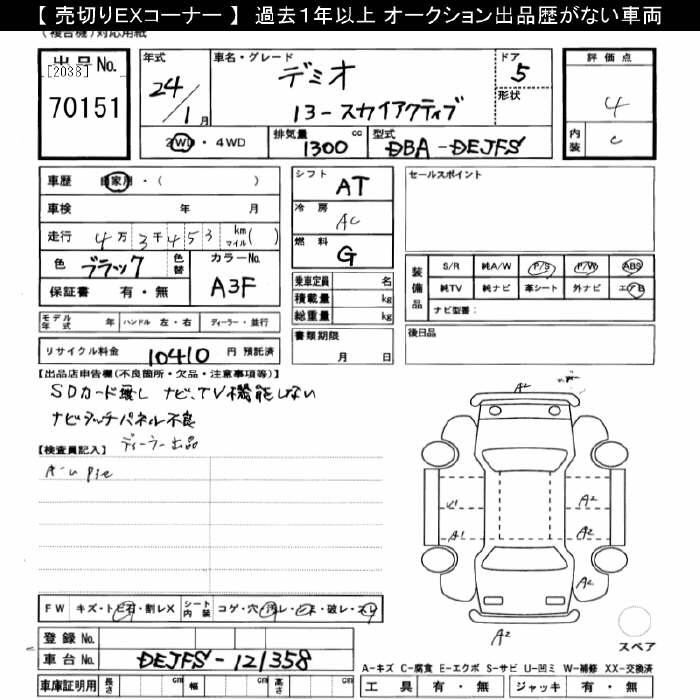 【 売切りEXコーナー 】 過去1年以上 オークション出品歴がない車両
(複合機)対応用紙
出品 No.
[2038]
70151
年式
24/1月
車名・グレード
デミオ
13-スカイアクティブ
ドア
5
形状
2WD・4WD
排気量
1300 cc
型式
DBA-DEJFS
評価点
4
内装
C
車歴 自家用・( )
車検 年 月
走行 4万3千453 km マイル( )
色 ブラック 色替
カラーNo.
A3F
保証書 有・無
シフト AT
冷房 AC
燃料 G
乗車定員 名
積載量 kg
総重量 kg
書類期限
月 日
セールスポイント
装備品
S/R 純A/W P/S P/W ABS
純TV 純ナビ 革シート 外ナビ エアB
ナビ型番:
後日品
モデル年式 年 ハンドル 左・右 ディーラー・並行
リサイクル料金 10410 円 預託済
【出品店申告欄(不良箇所・欠品・注意事項等)】
SDカード無し ナビ、TV機能しない
ナビタッチパネル不良
ディーラー出品
【検査員記入】
A-U
A2
U1
A2
A1
A2
A2
A2
スペア
FW キズ・トビ石・割レX
シート内装 コゲ・穴・汚レ・ ・破レ・スレ
登録 No.
車台 No. DEJFS-121358
車庫証明用 長さ cm 幅 cm 高さ cm
A-キズ C-腐食 E-エクボ S-サビ U-凹ミ W-補修 XX-交換済
工具 有・無 ジャッキ 有・無